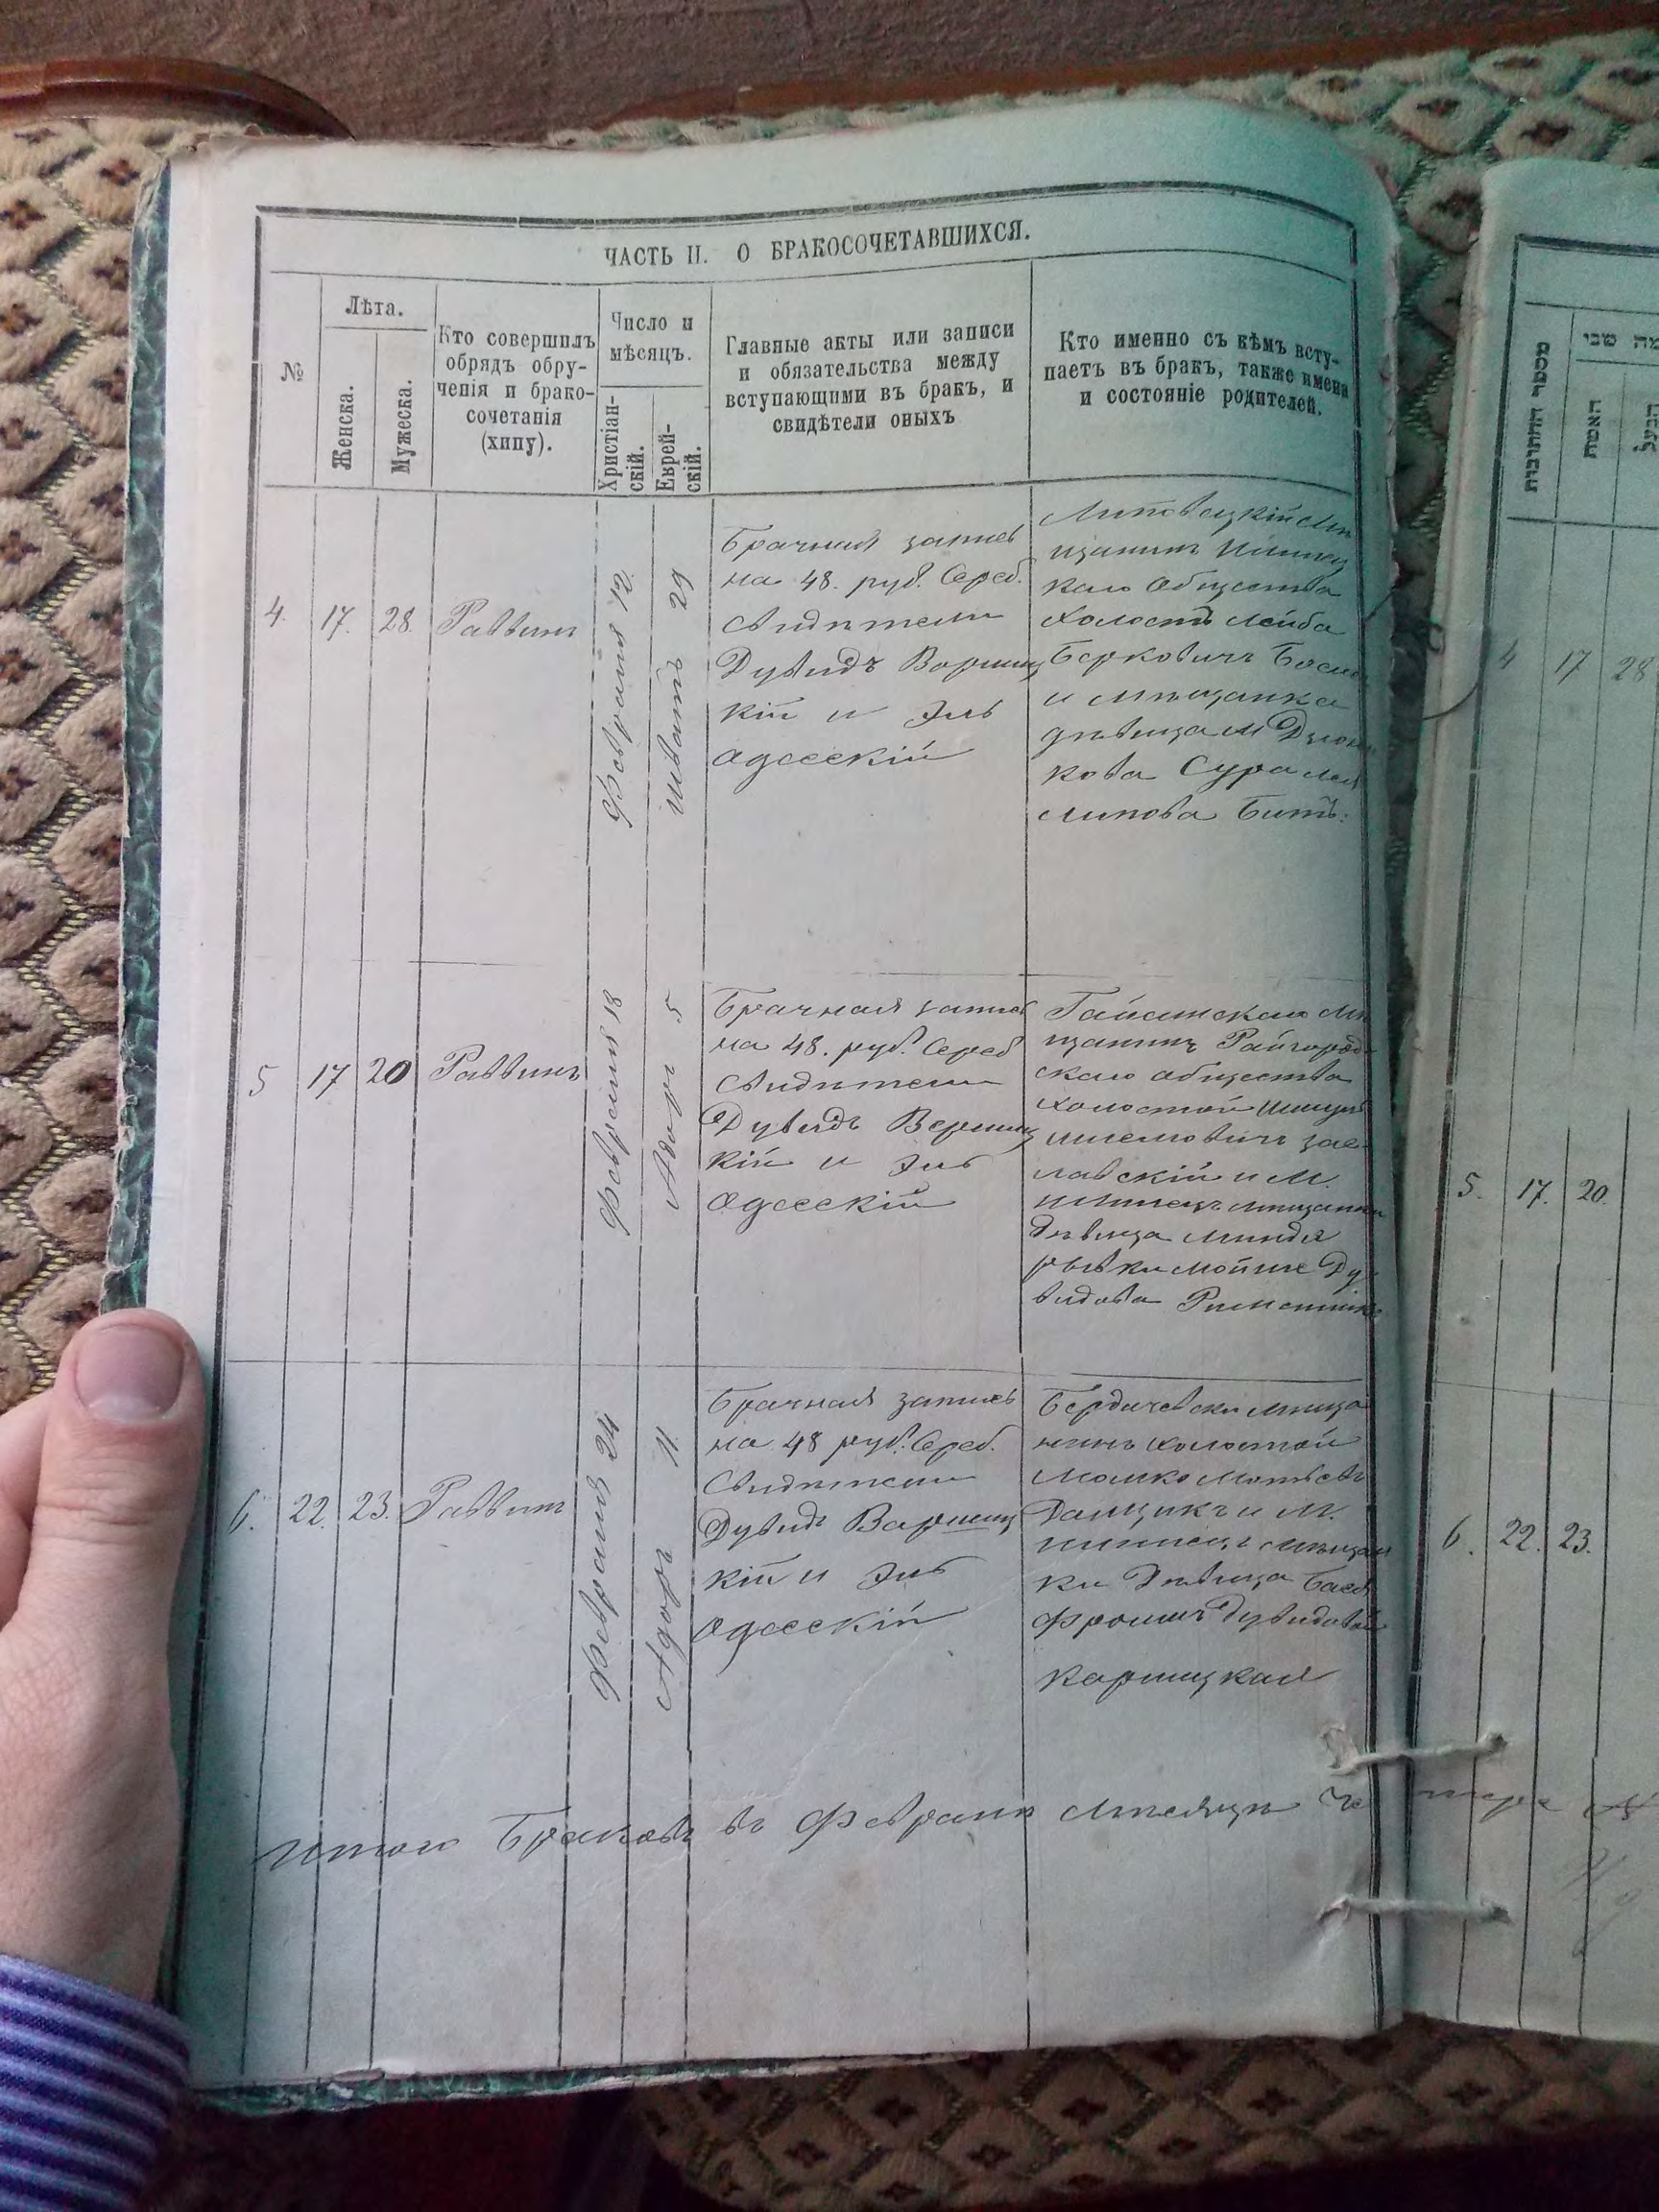 ЧАСТЬ II. О БРАКОСОЧЕТАВШИХСЯ.
№
Лѣта.
Женска.
Мужеска.
Кто совершилъ
обрядъ обру-
ченія и брако-
сочетанія
(хипу).
Число и
мѣсяцъ.
Христіан-
скій.
Еврей-
скій.
Главные акты или записи
и обязательства между
вступающими въ бракъ, и
свидѣтели оныхъ
Кто именно съ кѣмъ всту-
паетъ въ бракъ, также имена
и состояніе родителей.
4.
17.
28.
Раввинъ
Февраля 12.
Шватъ 29
Брачная запись
на 48. руб. Сереб.
Свидѣтели
Дувидъ Варшиц
кій и Эль
Одесскій
Липовецкій мѣ
щанинъ
каго Общества
Холостъ Лейба
Берковичъ
и мѣщанка
дѣвица
кова Сура
5
17
20
Раввинъ
Февраля 18
Адоръ 5
Брачная запись
на 48. руб. Сереб
Свидѣтели
Дувидъ Варшиц
кій и Эль
Одесскій
Гайсинскаго мѣ
щанинъ Райгород
скаго общества
холостой
Зас
лавскій и М.
Дѣвица Миндя
Ду
видова
6.
22.
23.
Раввинъ
Февраля 24
Адоръ 11.
Брачная запись
на 48 руб. Сереб.
Свидѣтели
Дувидъ Варшиц
кій и Эль
Одесскій
Бердичевски мѣща
нинъ холостой
Мошко
и М.
мѣщан
ки Дѣвица Бася
Дувидова
Каршицкая
Итого Браковъ въ Февралѣ мѣсяцѣ че тыре
מספר החתונות
האשה
הבעל
4
17
28
5.
17.
20.
6.
22.
23.